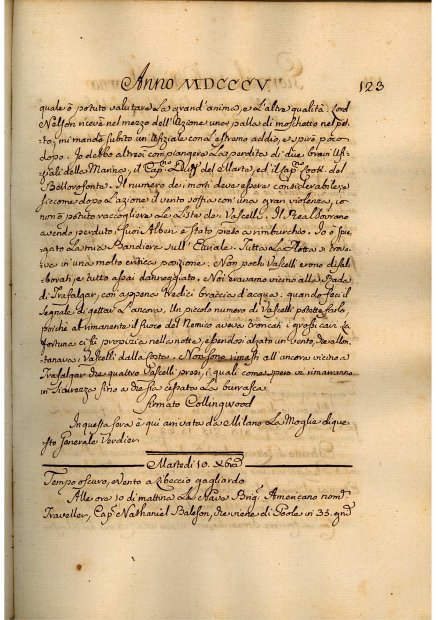 Anno MDCCCV. 123
quale ò potuto valutare la grand'anima, e l'altre qualità. Lord
Nelson ricevè nel mezzo dell'Azione una palla di moschetto nel pet-
to; mi mandò subito un Ufiziale con l'estremo addio, e spirò poco
dopo. Io debbo altresì compiangere la perdita di due bravi Ufi-
ziali della Marina, il Cap.º Duff del Marte, ed il Cap.º Cook del
Bellorofonte. Il numero de' morti deve essere considerabile, e
siccome dopo l'azione il vento soffia con una gran violenza, io
non ò potuto raccogliere le Liste de' Vascelli. Il Real Sovrano
avendo perduto i suoi Alberi è stato preso a rimburchio. Io ò spie-
gato la mia Bandiera sull'Euriale. Tutta la Flotta si trova-
va in una molto critica posizione. Non pochi Vascelli erono disal-
borati, e tutto assai danneggiato, e Noi eravamo vicino alla Rada
di Trafalgar, con appena tredici braccia d'acqua, quando feci il
segnale di gettar l'ancora. Un piccolo numero di Vascelli potette farlo,
poichè al rimanente il fuoco del Nemico aveva troncati i grossi cavi. La
fortuna ci fù propizia nella notte, essendosi alzato un vento, che allon-
tanava i Vascelli dalla Costa. Non sono rimasti all'ancora vicino a
Trafalgar che quattro Vascelli presi, i quali come spero vi rimarranno
in sicurezza fino a che sia cessata la burrasca
Firmato Collingwood
In questa sera è qui arrivata da Milano la Moglie di que-
sto Generale Verdier
Martedì 10. Xbre
Tempo oscuro, e Vento a Libeccio gagliardo
Alle ore 10 di mattina la Nave Brig. Americano nom.º
Traveller, Cap.º Nathaniel Baleson, che viene di Poole in 35. gni